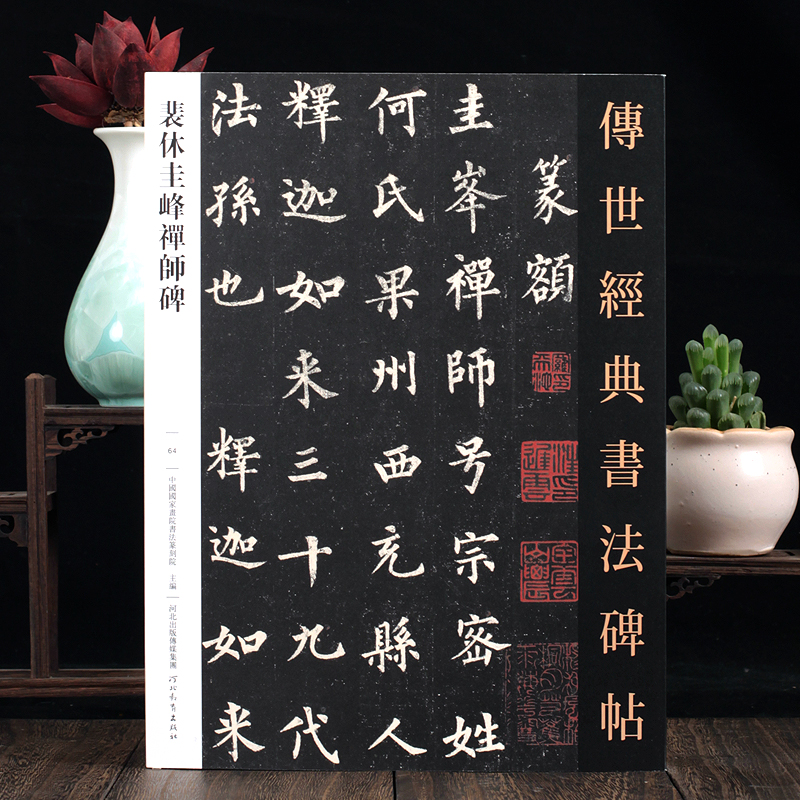 傳世經典書法碑帖
篆額
圭峯禪師号宗密姓
何氏果州西充縣人
釋迦如来三十九代
法孫也 釋迦如来
裴休圭峰禪師碑
64
中國國家畫院書法篆刻院 主編
河北出版傳媒集團
河北教育出版社